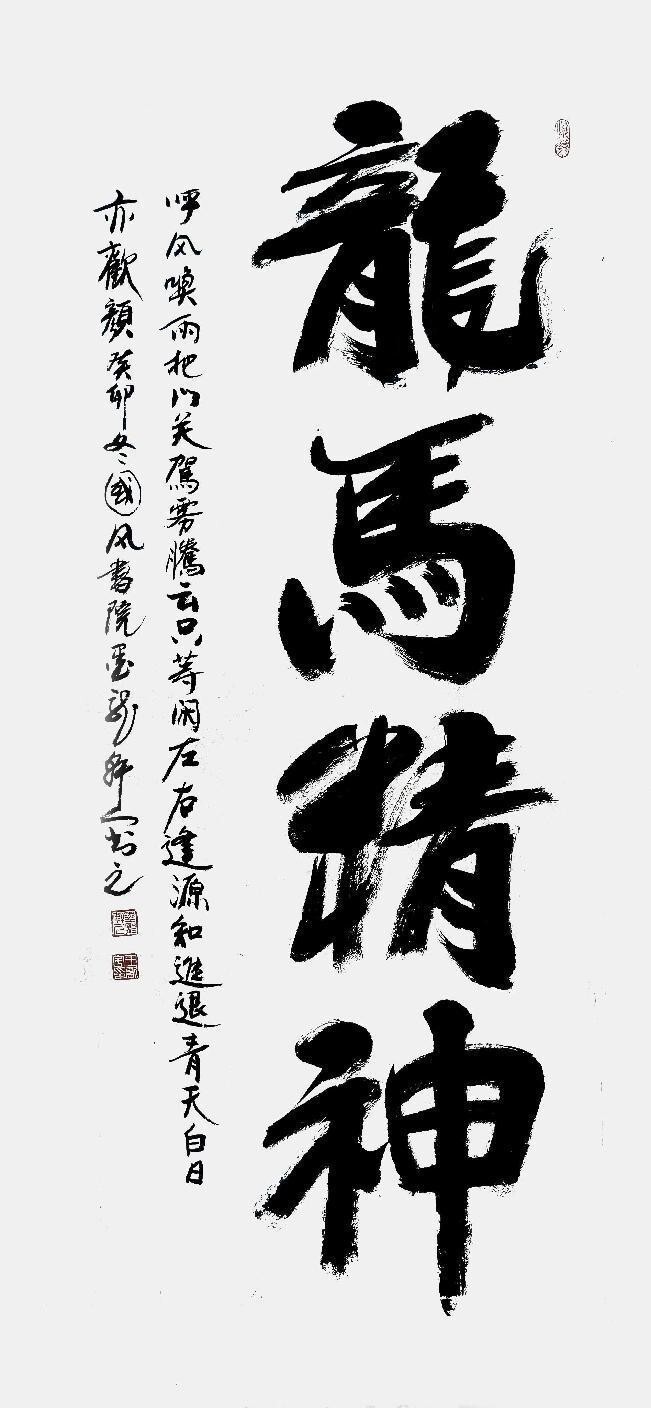 龍馬精神
呼风喚雨把门关駕雾騰云只等闲左右逢源知進退青天白日
亦歡顔癸卯冬國风書院墨龍軒人书之